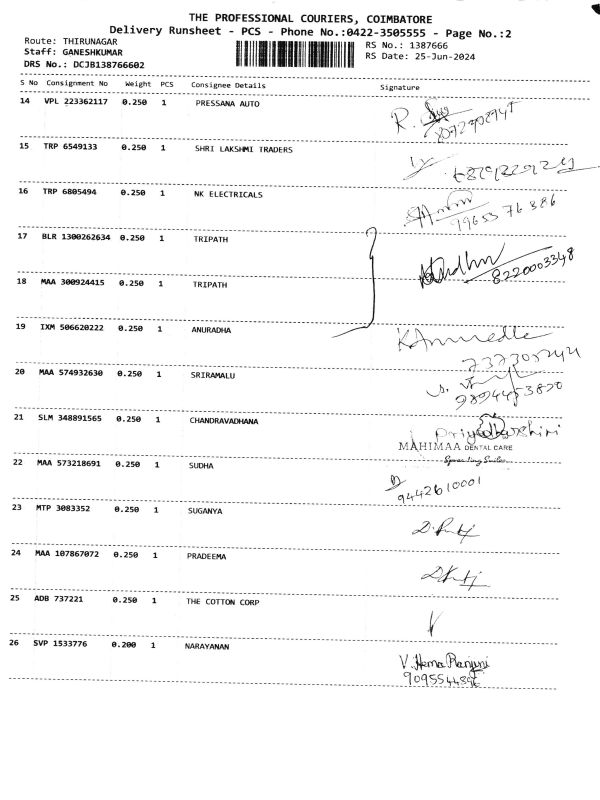 THE PROFESSIONAL COURIERS, COIMBATORE
Delivery Runsheet - PCS - Phone No.:0422-3505555 - Page No.:2
Route: THIRUNAGAR RS No.: 1387666
Staff: GANESHKUMAR RS Date: 25-Jun-2024
DRS No.: DCJB138766602
S No Consignment No Weight PCS Consignee Details Signature
14 VPL 223362117 0.250 1 PRESSANA AUTO
R.
15 TRP 6549133 0.250 1 SHRI LAKSHMI TRADERS
16 TRP 6805494 0.250 1 NK ELECTRICALS
99653 76386
17 BLR 1300262634 0.250 1 TRIPATH
8220003348
18 MAA 300924415 0.250 1 TRIPATH
19 IXM 506620222 0.250 1 ANURADHA
20 MAA 574932630 0.250 1 SRIRAMALU
21 SLM 348891565 0.250 1 CHANDRAVADHANA
Priyadharshini
MAHIMAA DENTAL CARE
22 MAA 573218691 0.250 1 SUDHA
9442610001
23 MTP 3083352 0.250 1 SUGANYA
24 MAA 107867072 0.250 1 PRADEEMA
25 ADB 737221 0.250 1 THE COTTON CORP
26 SVP 1533776 0.200 1 NARAYANAN
V. Hema Ranjini